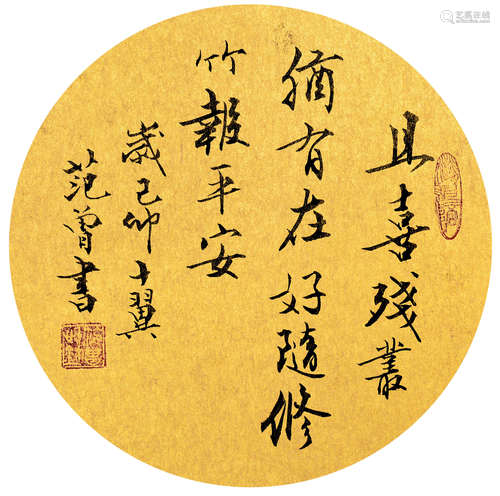 且喜残叢
猶有在好隨修
竹報平安
歲己卯十翼
范曾書